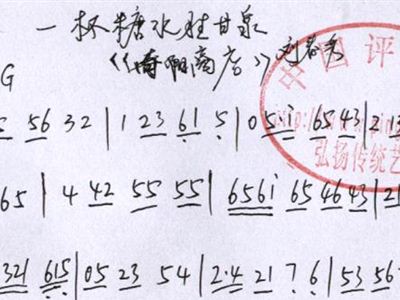 一杯糖水胜甘泉
《南阳商店》刘春秀
G
5 56 32 | 1 23 61 5 | 0 5i 65 43 | 2 13
65 | 4 42 55 55 | 6561 65 46 43 | 21
321 615 | 05 23 54 | 2·4 21 7 6 | 53 56
中国评
弘扬传统艺